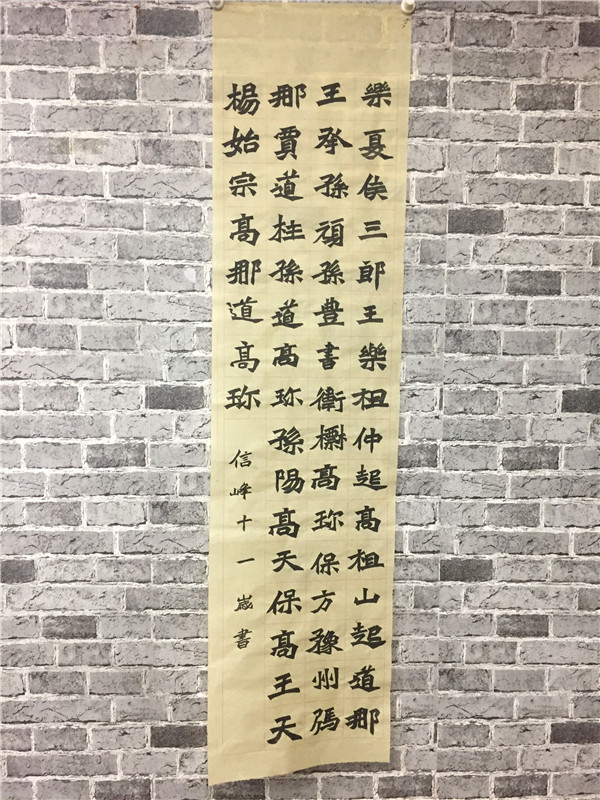 樂夏侯三郎王樂祖仲起高祖山起道邢
王承孫頑孫豊書衛㯌高珎保方豫州馮
邢賈道柱孫道高珎孫陽高天保高王天
楊始宗高邢道高珎
信峰十一嵗書